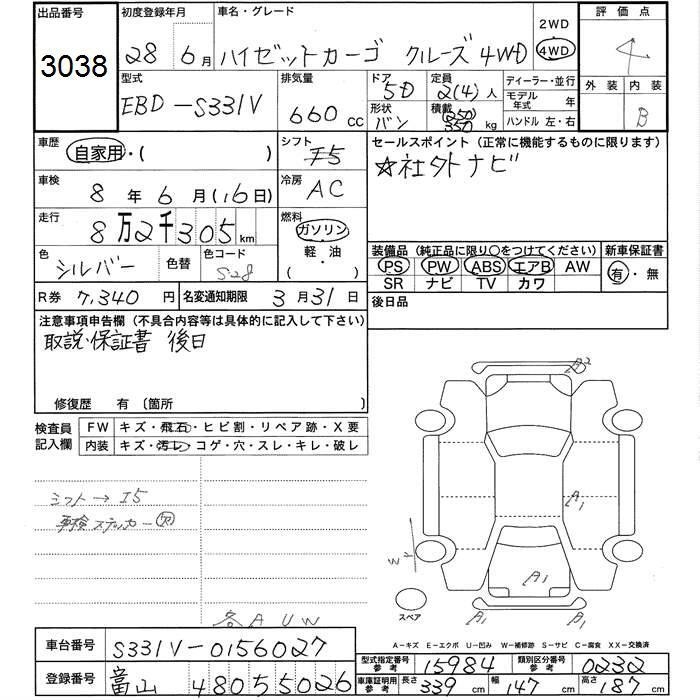 出品番号 初度登録年月 車名・グレード 2WD 評価点
3038 28年6月 ハイゼットカーゴ クルーズ 4WD 4WD 4
型式 排気量 ドア 定員 ディーラー・並行 外装 内装
EBD-S331V 660cc 5D 2(4)人 モデル年式 年 B
形状 バン 積載 (250) 350 kg ハンドル 左・右
車歴 自家用・( ) シフト F5 セールスポイント(正常に機能するものに限ります)
☆社外ナビ
車検 8年6月(16日) 冷房 AC
走行 8万2千305km 燃料 ガソリン
軽・油
( )
色 シルバー 色替 色コード S28
装備品(純正品に限り○をつけてください) 新車保証書
PS PW ABS エアB AW 有・無
SR ナビ TV カワ
R券 7,340円 名変通知期限 3月31日 後日品
注意事項申告欄(不具合内容等は具体的に記入して下さい)
取説・保証書 後日
修復歴 有 (箇所
検査員記入欄 FW キズ・飛石・ヒビ割・リペア跡・X要
内装 キズ・汚レ・コゲ・穴・スレ・キレ・破レ
シフト→I5
車検ステッカー欠
各AUW
A2
A1
A1
W
スペア
B1 B1
A-キズ E-エクボ U-凹み W-補修跡 S-サビ C-腐食 XX-交換済
車台番号 S331V-0156027
型式指定番号 参考 15984 類別区分番号 参考 0232
登録番号 富山 480 55026
車庫証明用 参考 長さ 339cm 幅 147cm 高さ 187cm